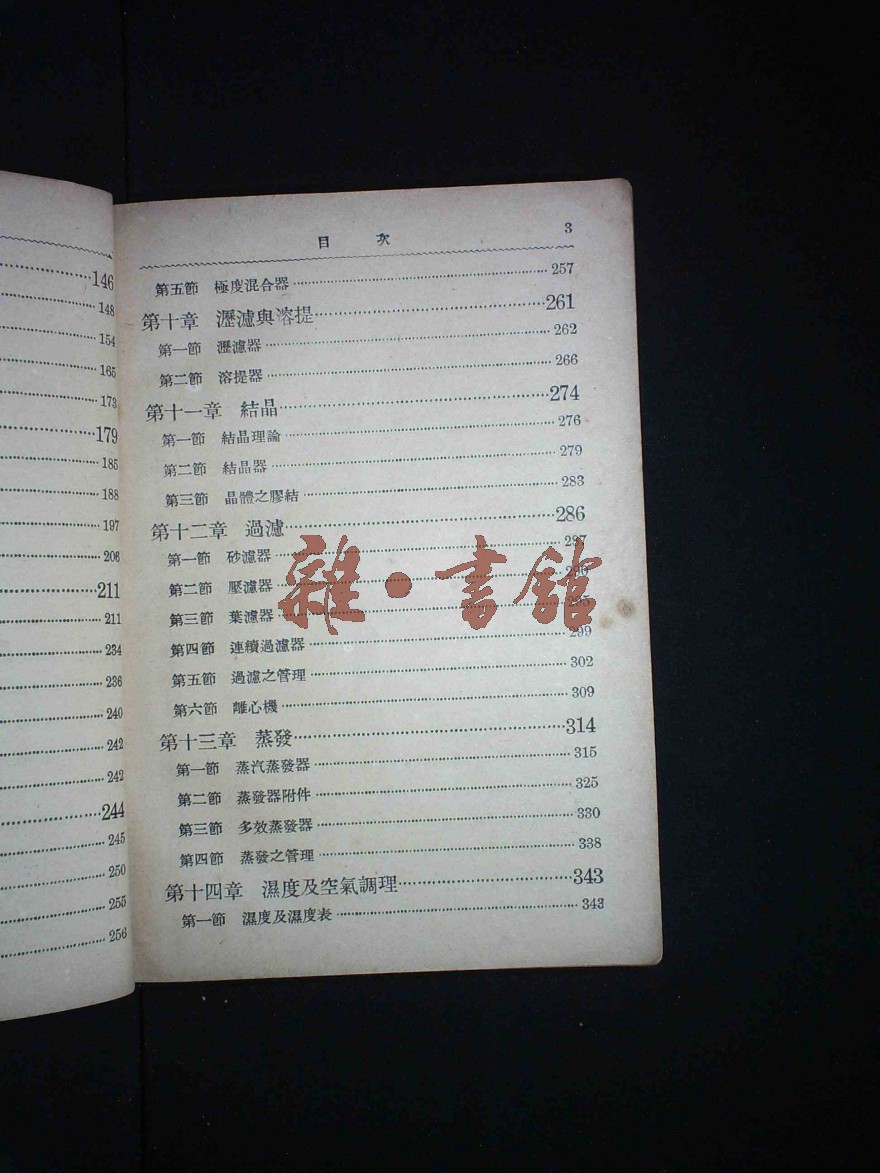 146
148
154
165
173
179
185
188
197
206
211
211
234
236
240
242
242
244
245
250
255
256
目 次 3
第五節 極度混合器 257
第十章 瀝濾與溶提 261
第一節 瀝濾器 262
第二節 溶提器 266
第十一章 結晶 274
第一節 結晶理論 276
第二節 結晶器 279
第三節 晶體之膠結 283
第十二章 過濾 286
第一節 砂濾器 287
第二節 壓濾器
第三節 葉濾器 295
第四節 連續過濾器 299
第五節 過濾之管理 302
第六節 離心機 309
第十三章 蒸發 314
第一節 蒸汽蒸發器 315
第二節 蒸發器附件 325
第三節 多效蒸發器 330
第四節 蒸發之管理 338
第十四章 濕度及空氣調理 343
第一節 濕度及濕度表 343
雜·書館